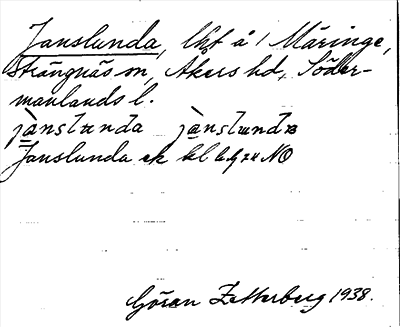 Janslunda, lht å 1 Märinge,
Strängnäs sn, Åkers hd, Söder-
manlands l.
jànslunda jànslunda
Janslunda ek bl NO
Göran Zetterberg 1938.